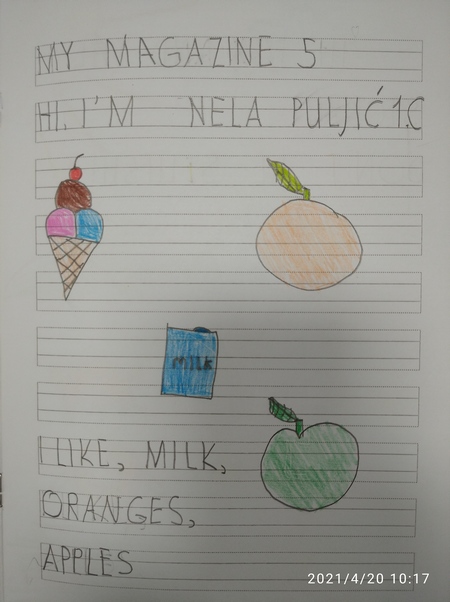 MY MAGAZINE 5
HI, I'M NELA PULJIĆ 1.C
MILK
I LIKE, MILK,
ORANGES,
APPLES
2021/4/20 10:17